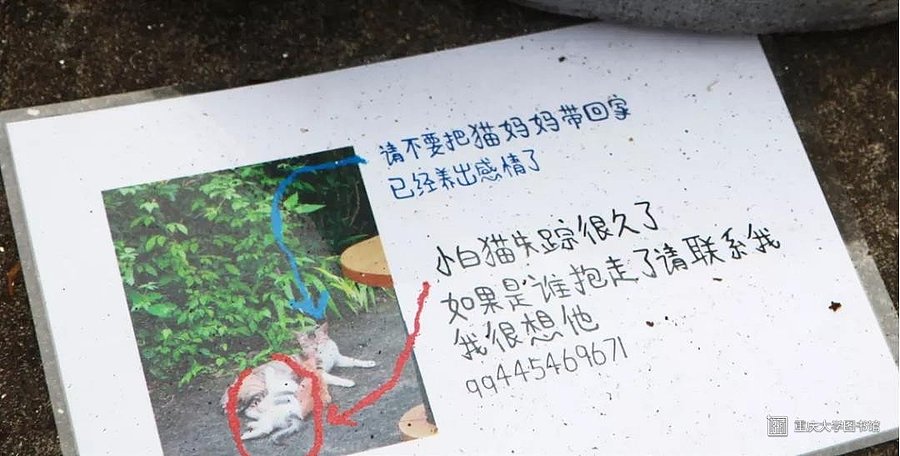 请不要把猫妈妈带回家
已经养出感情了
小白猫失踪很久了
如果是谁抱走了请联系我
我很想他
99445469671
重庆大学图书馆